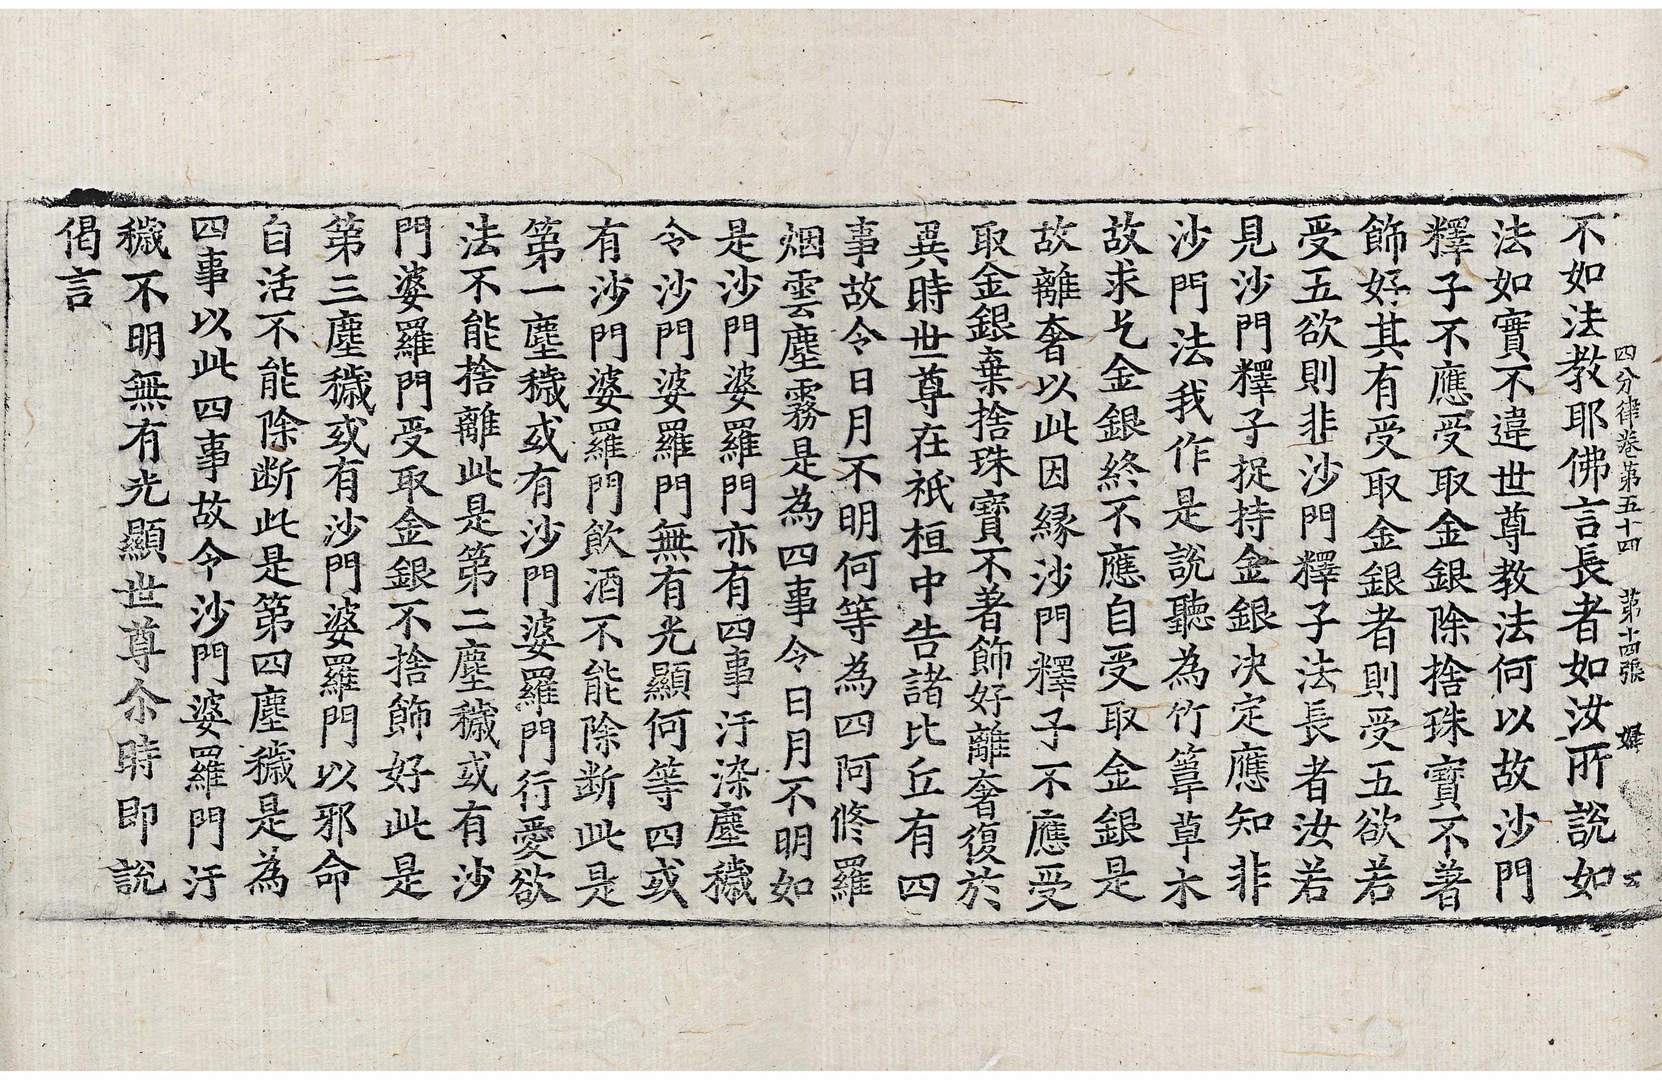 四分律卷第五十四　第十四張　婦
不如法教耶佛言長者如汝所說如
法如實不違世尊教法何以故沙門
釋子不應受取金銀除捨珠寶不著
飾好其有受取金銀者則受五欲若
受五欲則非沙門釋子法長者汝若
見沙門釋子捉持金銀決定應知非
沙門法我作是說聽為竹簟草木
故求乞金銀終不應自受取金銀是
故離奢以此因緣沙門釋子不應受
取金銀棄捨珠寶不著飾好離奢復於
異時世尊在祇桓中告諸比丘有四
事故令日月不明何等為四阿脩羅
烟雲塵霧是為四事令日月不明如
是沙門婆羅門亦有四事汙染塵穢
令沙門婆羅門無有光顯何等四或
有沙門婆羅門飲酒不能除斷此是
第一塵穢或有沙門婆羅門行愛欲
法不能捨離此是第二塵穢或有沙
門婆羅門受取金銀不捨飾好此是
第三塵穢或有沙門婆羅門以邪命
自活不能除斷此是第四塵穢是為
四事以此四事故令沙門婆羅門汙
穢不明無有光顯世尊尒時即說
偈言